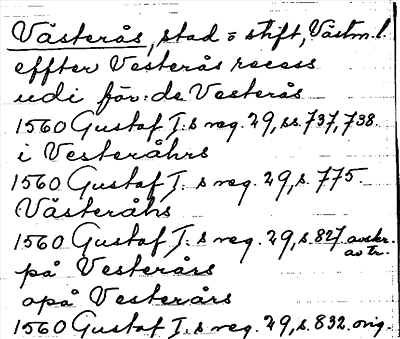 Västerås, stad o stift, Västm. l.
effter Vesterås recess
udi för:da Vesterås
1560 Gustaf I:s reg. 29, ss. 737, 738.
i Vesteråhrs
1560 Gustaf I:s reg. 29, s. 775.
Västeråhs
1560 Gustaf I:s reg. 29, s. 827 avskr. av tr.
på Vesterårs
opå Vesterårs
1560 Gustaf I:s reg. 29, s. 832. orig.